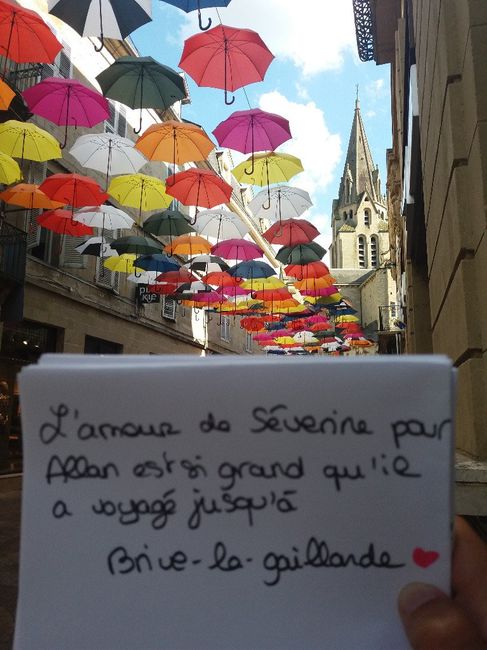 L'amour de Séverine pour
Allan est si grand qu'il
a voyagé jusqu'à
Brive-la-gaillarde